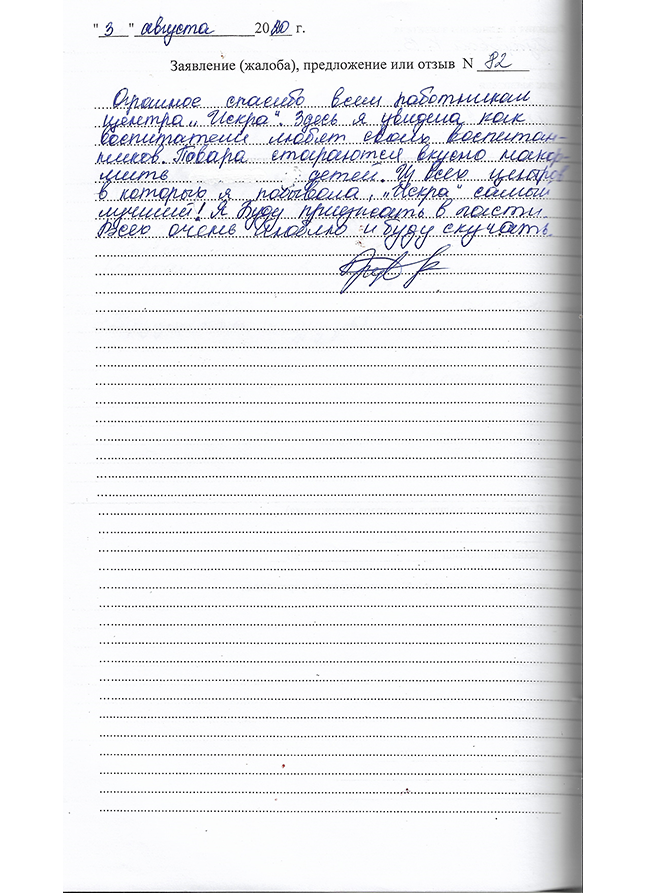 "3" августа 2020 г.
Заявление (жалоба), предложение или отзыв N 82
Огромное спасибо всем работникам
центра „Искра". Здесь я увидела как
воспитатели любят своих воспитан-
ников. Повара стараются вкусно накор-
мить детей. Из всех центров
в которых я побывала, „Искра" самый
лучший! Я буду приезжать в гости.
Всех очень люблю и буду скучать.